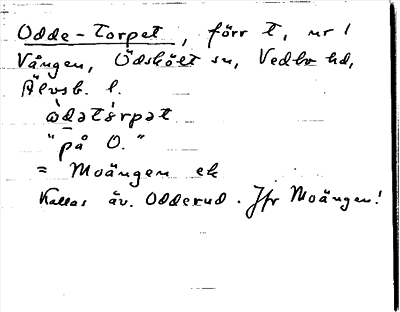 Odde-Torpet, förr t, nr 1
Vången, Ödskölt sn, Vedbo hd,
Älvsb. l.
ꞷ̀dətśrpət
"på O."
= Moängen ek
Kallas äv. Odderud. Jfr Moängen!